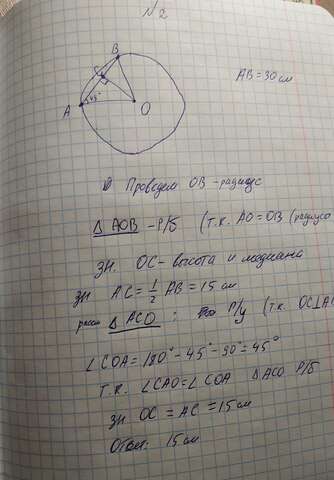 №2
B
C
A 45° O
AB = 30 см
Проведем OB - радиус
△AOB - р/б (т.к. AO = OB (радиусы
зн. OC - высота и медиана
зн AC = 1/2 AB = 15 см
△ACO : р/у (т.к. OC⊥A
∠COA = 180° - 45° - 90° = 45°
т.к. ∠CAO = ∠COA △ACO р/б
зн OC = AC = 15 см
Ответ: 15 см